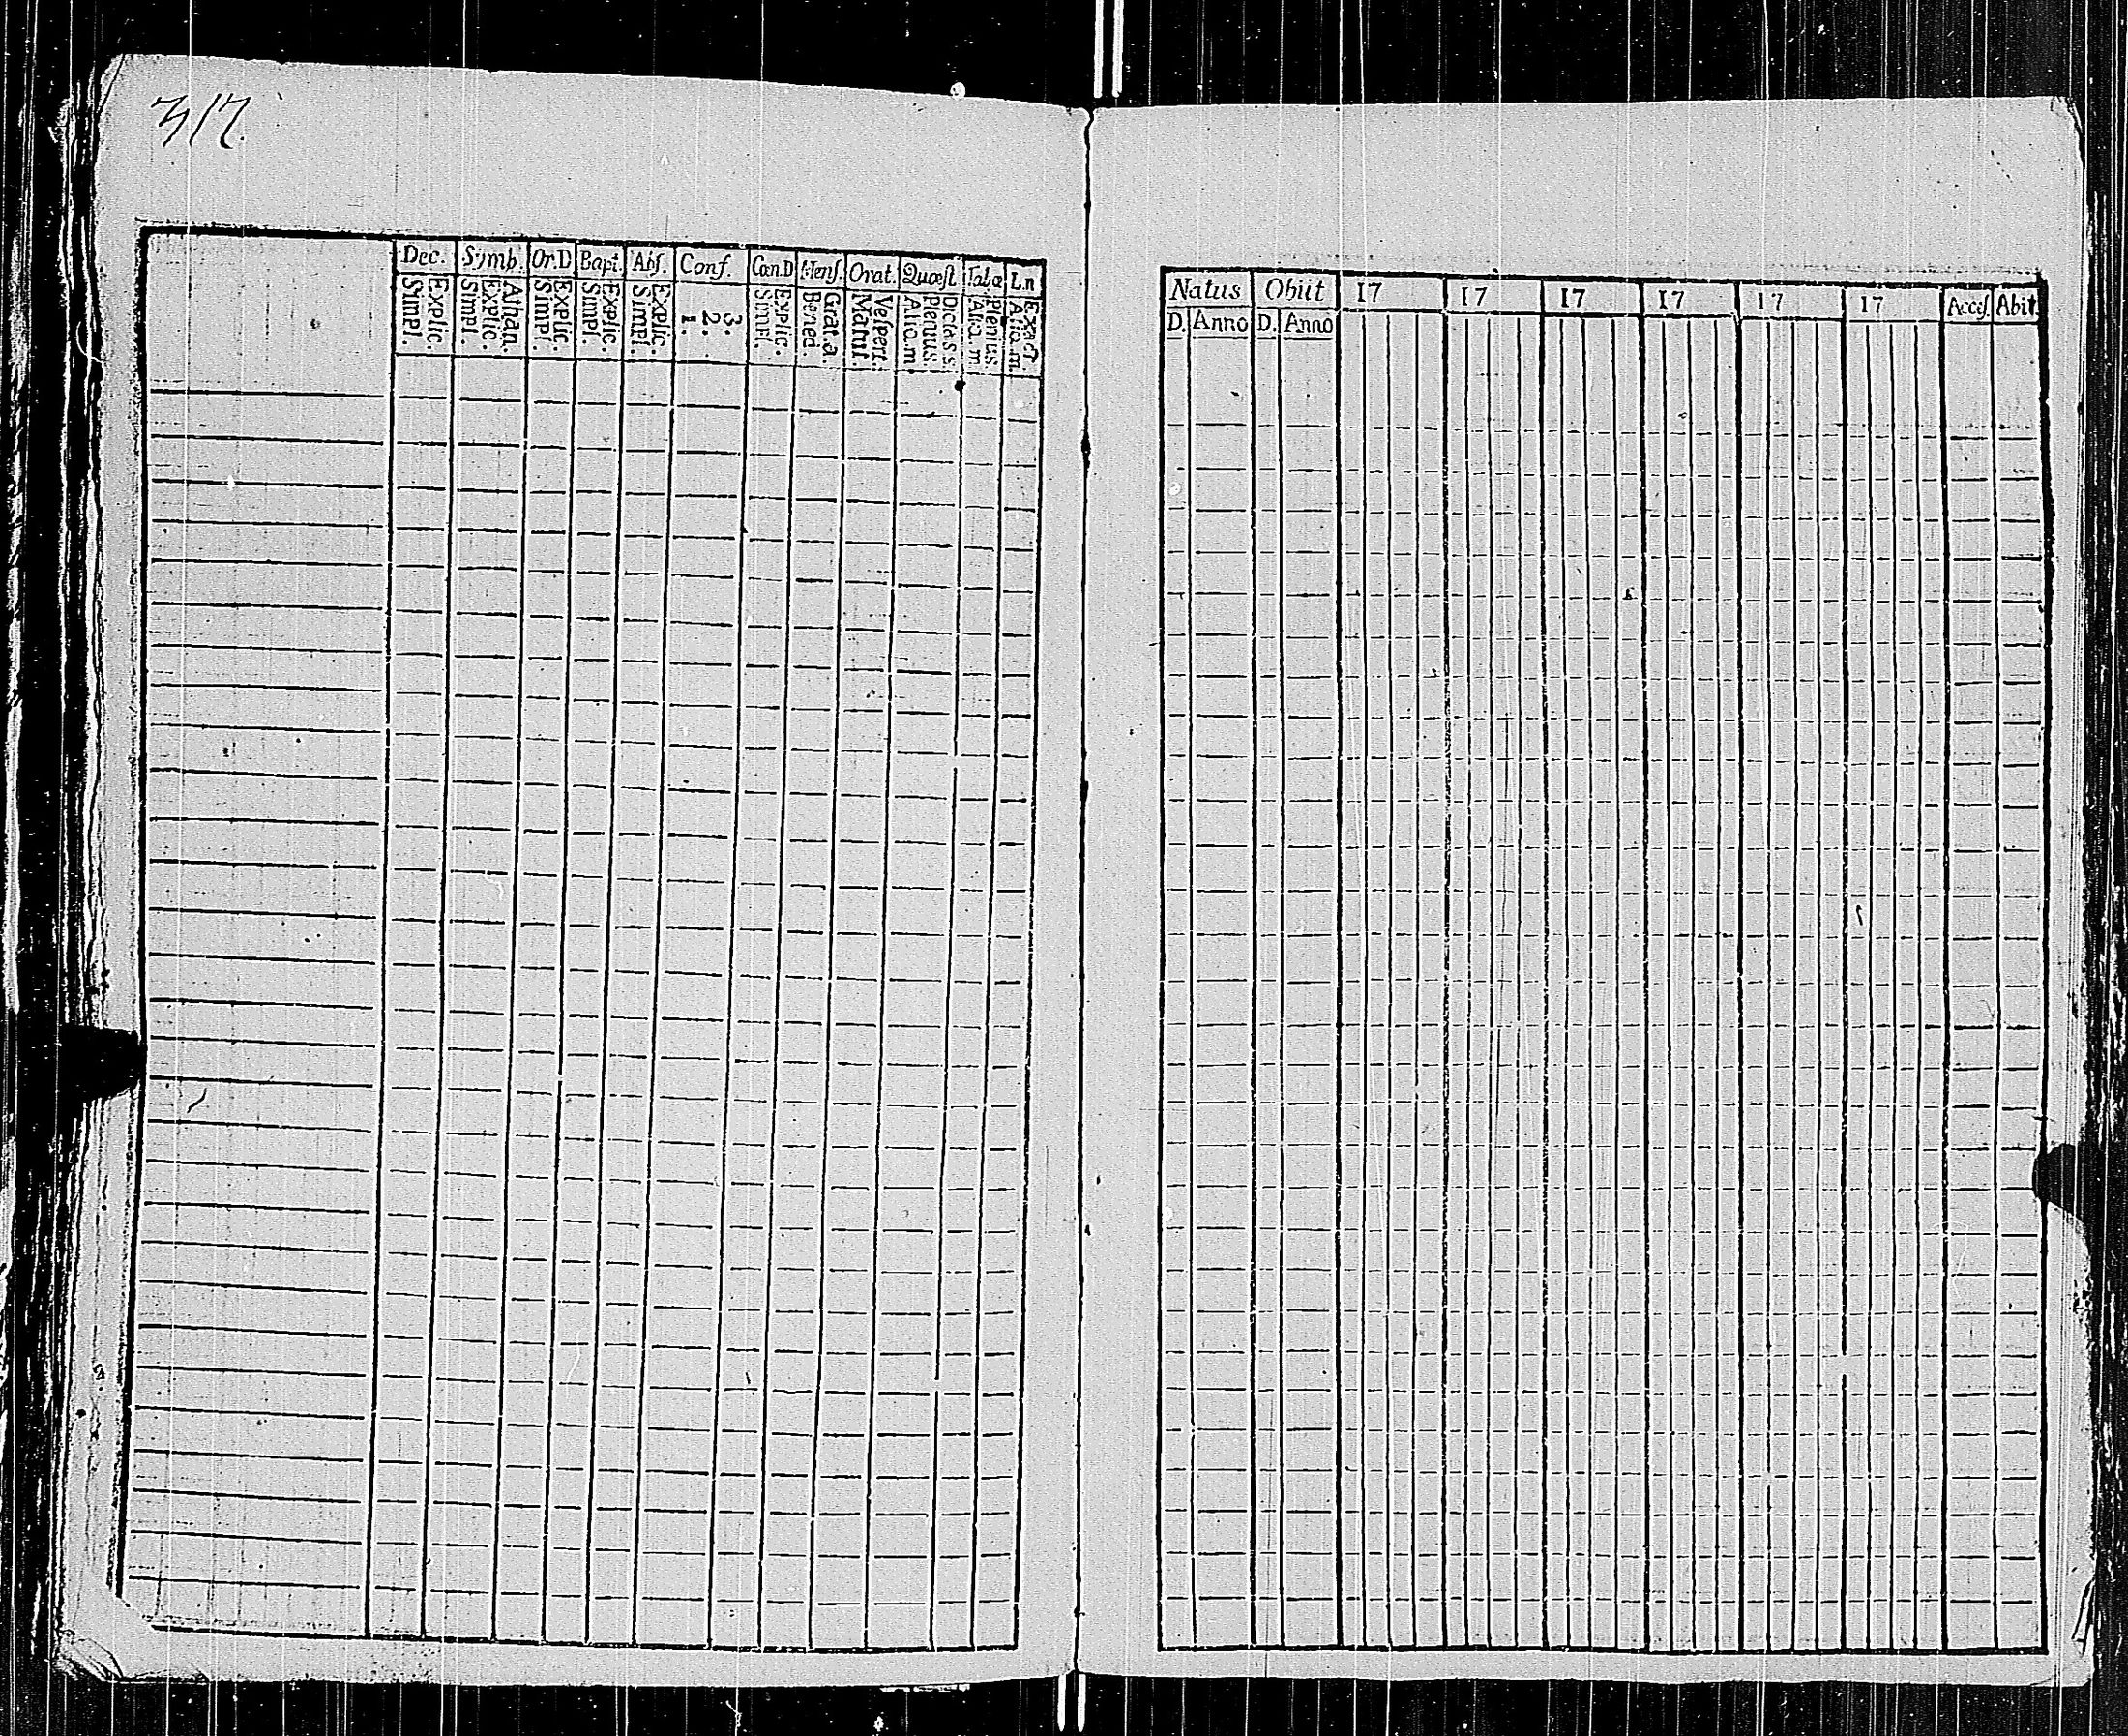 317.
Dec. Symb. Or.D Bapt. Abs. Conf. Cœn.D Mens. Orat. Quæst Tabæ L.n
Explic. Simpl. Athan. Explic. Simpl. Explic. Simpl. Explic. Simpl. Explic. Simpl. 3. 2. 1. Explic. Simpl. Grat.a Bened. Vespert. Matut. Dicta s.s. Plenius. Aliq.m Plenius. Aliq.m. Exact. Aliq.m.
Natus Obiit 17 17 17 17 17 17 Acces. Abit.
D. Anno D. Anno